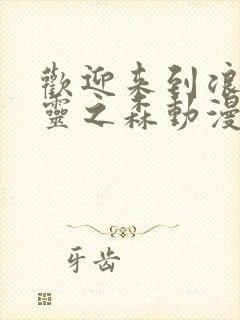 歡迎来到浪
靈之森動漫
牙齿